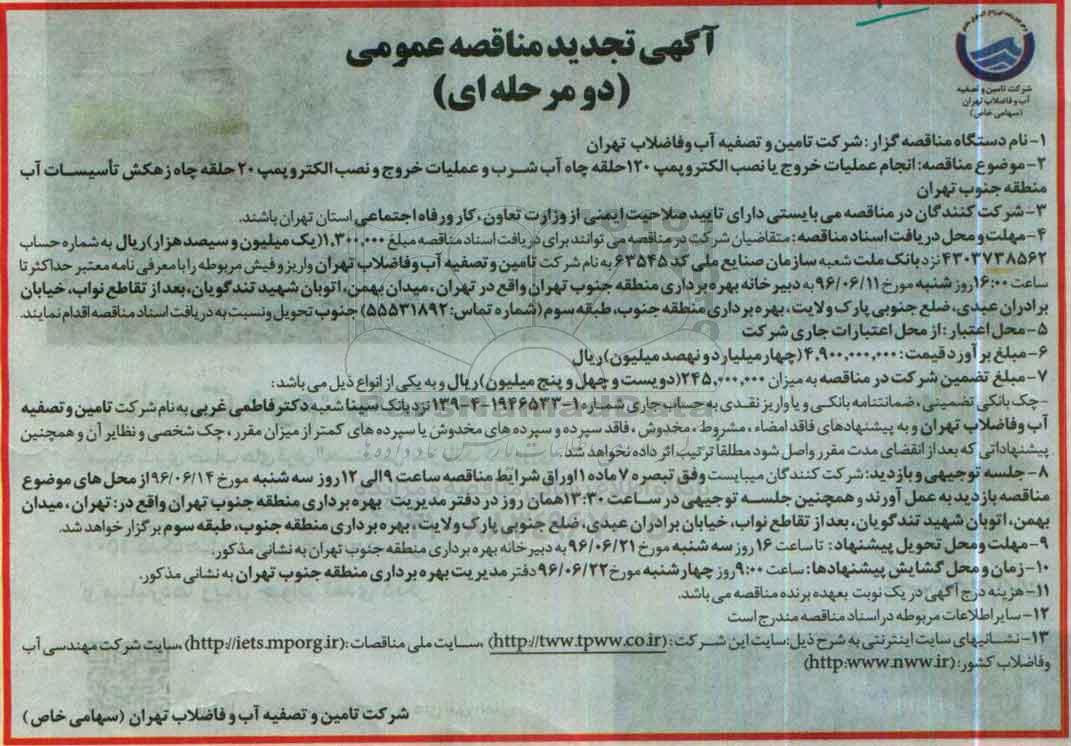 شرکت تامین و تصفیه
آب و فاضلاب تهران
(سهامی خاص)
آگهی تجدید مناقصه عمومی
(دو مرحله ای)
۱- نام دستگاه مناقصه گزار: شرکت تامین و تصفیه آب وفاضلاب تهران
۲- موضوع مناقصه: انجام عملیات خروج یا نصب الکتروپمپ ۱۲۰حلقه چاه آب شرب و عملیات خروج و نصب الکتروپمپ ۲۰ حلقه چاه زهکش تأسیسات آب
منطقه جنوب تهران
۳- شرکت کنندگان در مناقصه می بایستی دارای تایید صلاحیت ایمنی از وزارت تعاون، کار و رفاه اجتماعی استان تهران باشند.
۴- مهلت و محل دریافت اسناد مناقصه: متقاضیان شرکت در مناقصه می توانند برای دریافت اسناد مناقصه مبلغ ۱,۳۰۰,۰۰۰(یک میلیون و سیصد هزار) ریال به شماره حساب
۴۳۰۳۷۳۸۵۶۲ نزد بانک ملت شعبه سازمان صنایع ملی کد ۶۳۵۴۵ به نام شرکت تامین و تصفیه آب وفاضلاب تهران واریز و فیش مربوطه را با معرفی نامه معتبر حداکثر تا
ساعت ۱۶:۰۰روز شنبه مورخ ۹۶/۰۶/۱۱ به دبیرخانه بهره برداری منطقه جنوب تهران واقع در تهران، میدان بهمن، اتوبان شهید تندگویان، بعد از تقاطع نواب، خیابان
برادران عبدی، ضلع جنوبی پارک ولایت، بهره برداری منطقه جنوب، طبقه سوم (شماره تماس: ۵۵۵۳۱۸۹۲) جنوب تحویل و نسبت به دریافت اسناد مناقصه اقدام نمایند.
۵- محل اعتبار: از محل اعتبارات جاری شرکت
۶- مبلغ برآورد قیمت: ۴,۹۰۰,۰۰۰,۰۰۰(چهار میلیارد و نهصد میلیون) ریال
۷- مبلغ تضمین شرکت در مناقصه به میزان ۲۴۵,۰۰۰,۰۰۰(دویست و چهل و پنج میلیون) ریال و به یکی از انواع ذیل می باشد:
-چک بانکی تضمینی، ضمانتنامه بانکی و یا واریز نقدی به حساب جاری شماره ۱۰-۱۹۴۶۵۳۳-۴-۱۳۹ نزد بانک سینا شعبه دکتر فاطمی غربی به نام شرکت تامین و تصفیه
آب وفاضلاب تهران و به پیشنهادهای فاقد امضاء، مشروط، مخدوش، فاقد سپرده و سپرده های مخدوش یا سپرده های کمتر از میزان مقرر، چک شخصی و نظایر آن و همچنین
پیشنهاداتی که بعد از انقضای مدت مقرر واصل شود مطلقا ترتیب اثر داده نخواهد شد.
۸- جلسه توجیهی و بازدید: شرکت کنندگان میبایست وفق تبصره ۷ ماده ۱ اوراق شرایط مناقصه ساعت ۹ الی ۱۲ روز سه شنبه مورخ ۹۶/۰۶/۱۴ از محل های موضوع
مناقصه بازدید به عمل آورند و همچنین جلسه توجیهی در ساعت ۱۳:۳۰ همان روز در دفتر مدیریت بهره برداری منطقه جنوب تهران واقع در: تهران، میدان
بهمن، اتوبان شهید تندگویان، بعد از تقاطع نواب، خیابان برادران عبدی، ضلع جنوبی پارک ولایت، بهره برداری منطقه جنوب، طبقه سوم برگزار خواهد شد.
۹- مهلت و محل تحویل پیشنهاد: تا ساعت ۱۶ روز سه شنبه مورخ ۹۶/۰۶/۲۱ به دبیرخانه بهره برداری منطقه جنوب تهران به نشانی مذکور.
۱۰- زمان و محل گشایش پیشنهادها: ساعت ۹:۰۰ روز چهارشنبه مورخ ۹۶/۰۶/۲۲ دفتر مدیریت بهره برداری منطقه جنوب تهران به نشانی مذکور.
۱۱- هزینه درج آگهی در یک نوبت بعهده برنده مناقصه می باشد.
۱۲- سایر اطلاعات مربوطه در اسناد مناقصه مندرج است
۱۳- نشانیهای سایت اینترنتی به شرح ذیل: سایت این شرکت: (http://tww.tpww.co.ir) ،سایت ملی مناقصات: (http://iets.mporg.ir) ،سایت شرکت مهندسی آب
وفاضلاب کشور: (http:www.nww.ir)
شرکت تامین و تصفیه آب و فاضلاب تهران (سهامی خاص)